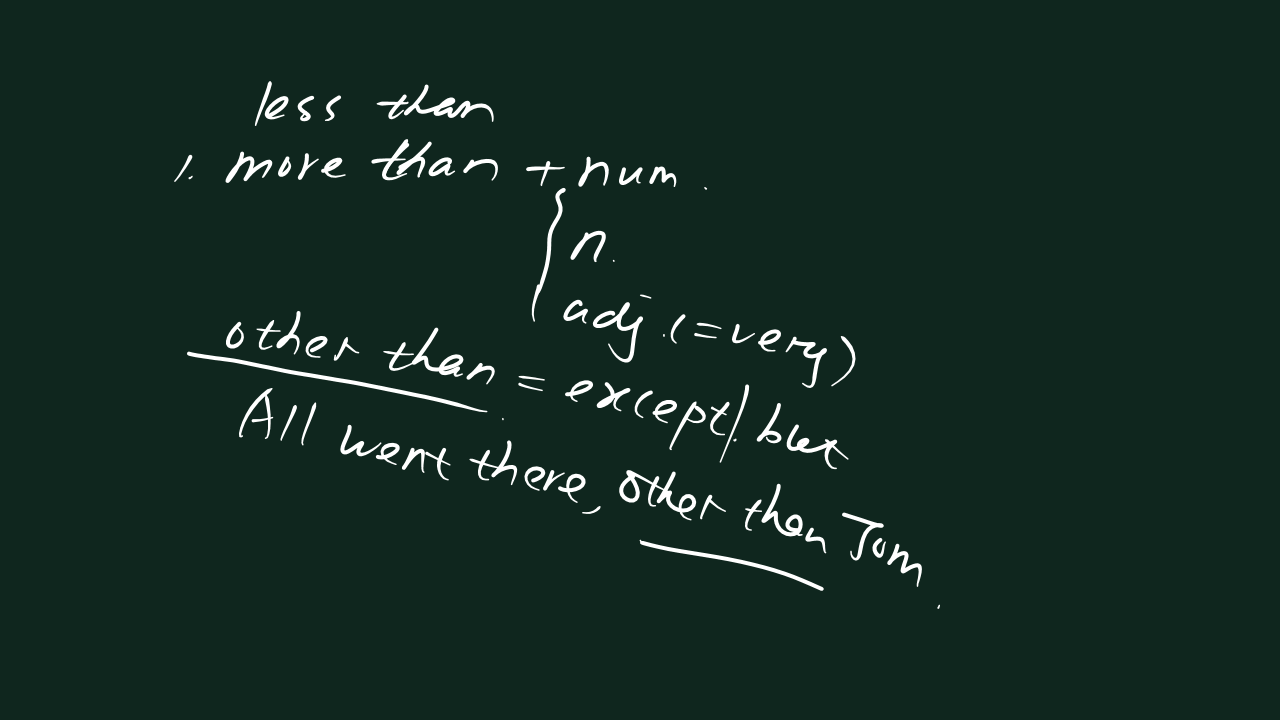 less than
1. more than + num.
n.
adj. (=very)
other than = except / but
All went there, other than Tom.